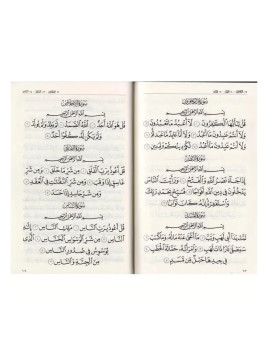 سورة الكافرون
بسم الله الرحمن الرحيم
قل يأيها الكفرون ۝ لا أعبد ما تعبدون ۝
ولا أنتم عبدون ما أعبد ۝ ولا أنا عابد ما عبدتم ۝
ولا أنتم عبدون ما أعبد ۝ لكم دينكم ولي دين ۝
سورة النصر
بسم الله الرحمن الرحيم
إذا جاء نصر الله والفتح ۝ ورأيت الناس
يدخلون في دين الله أفواجا ۝ فسبح بحمد ربك
واستغفره إنه كان توابا ۝
سورة المسد
بسم الله الرحمن الرحيم
تبت يدا أبي لهب وتب ۝ ما أغنى عنه ماله وما كسب ۝
سيصلى نارا ذات لهب ۝ وامرأته حمالة الحطب ۝
في جيدها حبل من مسد ۝
سورة الإخلاص
بسم الله الرحمن الرحيم
قل هو الله أحد ۝ الله الصمد ۝ لم يلد ولم يولد ۝
ولم يكن له كفوا أحد ۝
سورة الفلق
بسم الله الرحمن الرحيم
قل أعوذ برب الفلق ۝ من شر ما خلق ۝ ومن شر
غاسق إذا وقب ۝ ومن شر النفثت في العقد ۝
ومن شر حاسد إذا حسد ۝
سورة الناس
بسم الله الرحمن الرحيم
قل أعوذ برب الناس ۝ ملك الناس ۝ إله
الناس ۝ من شر الوسواس الخناس ۝ الذي
يوسوس في صدور الناس ۝
من الجنة والناس ۝